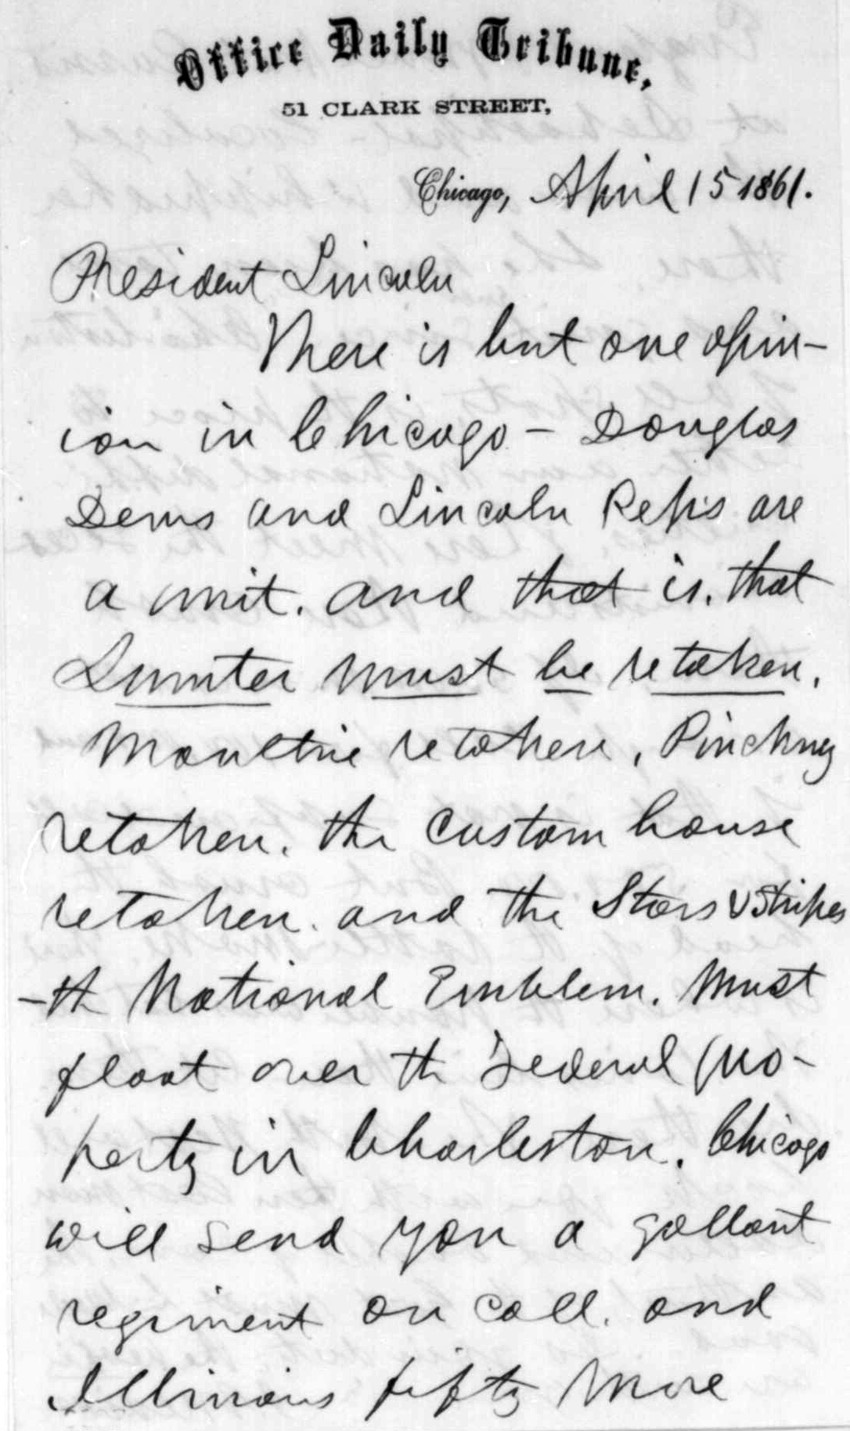 Office Daily Tribune,
51 CLARK STREET,
Chicago, April 15 1861.
President Lincoln
There is but one opin-
ion in Chicago - Douglas
Dems and Lincoln Rep's are
a unit. and that is. that
Sumter must be retaken.
Moultrie retaken, Pinckney
retaken. the custom house
retaken. and the Stars & Stripes
- th National Emblem. must
float over th Federal pro-
perty in Charleston. Chicago
will send you a gallant
regiment on call. and
Illinois fifty more